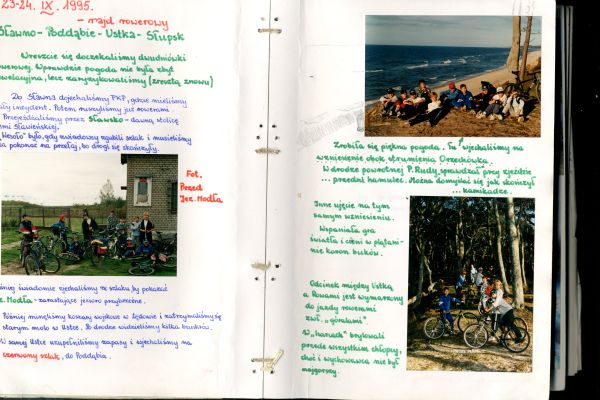 23-24. IX. 1995.
- rajd rowerowy
Sławno - Poddąbie - Ustka - Słupsk
Wreszcie się doczekaliśmy dwudniówki
rowerowej. Wprawdzie pogoda nie była zbyt
rewelacyjna, lecz zaryzykowaliśmy (zresztą znowu)
Do Sławna dojechaliśmy PKP, gdzie mieliśmy
mały incydent. Potem ruszyliśmy już rowerami
Przejeżdżaliśmy przez Sławsko - dawną stolicę
Ziemi Sławieńskiej.
"Wesoło" było, gdy zwiadowcy zgubili szlak i musieliśmy
pokonać na przełaj, bo drogi się skończyły.
Fot.
Przed
Jez. Modła
świadomie zjechaliśmy ze szlaku, by pokazać
Jez. Modła - zarastające jezioro przybrzeżne.
Później minęliśmy koszary wojskowe w Lędowie i zatrzymaliśmy się
starym molo w Ustce. Po drodze widzieliśmy kilka bunkrów.
W samej Ustce uzupełniliśmy zapasy i wjechaliśmy na
czerwony szlak, do Poddąbia.
Zrobiła się piękna pogoda. Tu wjechaliśmy na
wzniesienie obok strumienia Orzechówka.
W drodze powrotnej P. Rudy sprawdzał przy zjeździe
... przedni hamulec. Można domyślać się jak skończył
... kamikadze.
Inne ujęcie na tym
samym wzniesieniu.
Wspaniała gra
światła i cieni w plątani-
nie koron buków.
Odcinek między Ustką
a Rowami jest wymarzony
do jazdy rowerami
zwł. "góralami".
W "harcach" brylowali
przede wszystkim chłopcy,
choć i wychowawca nie był
najgorszy.